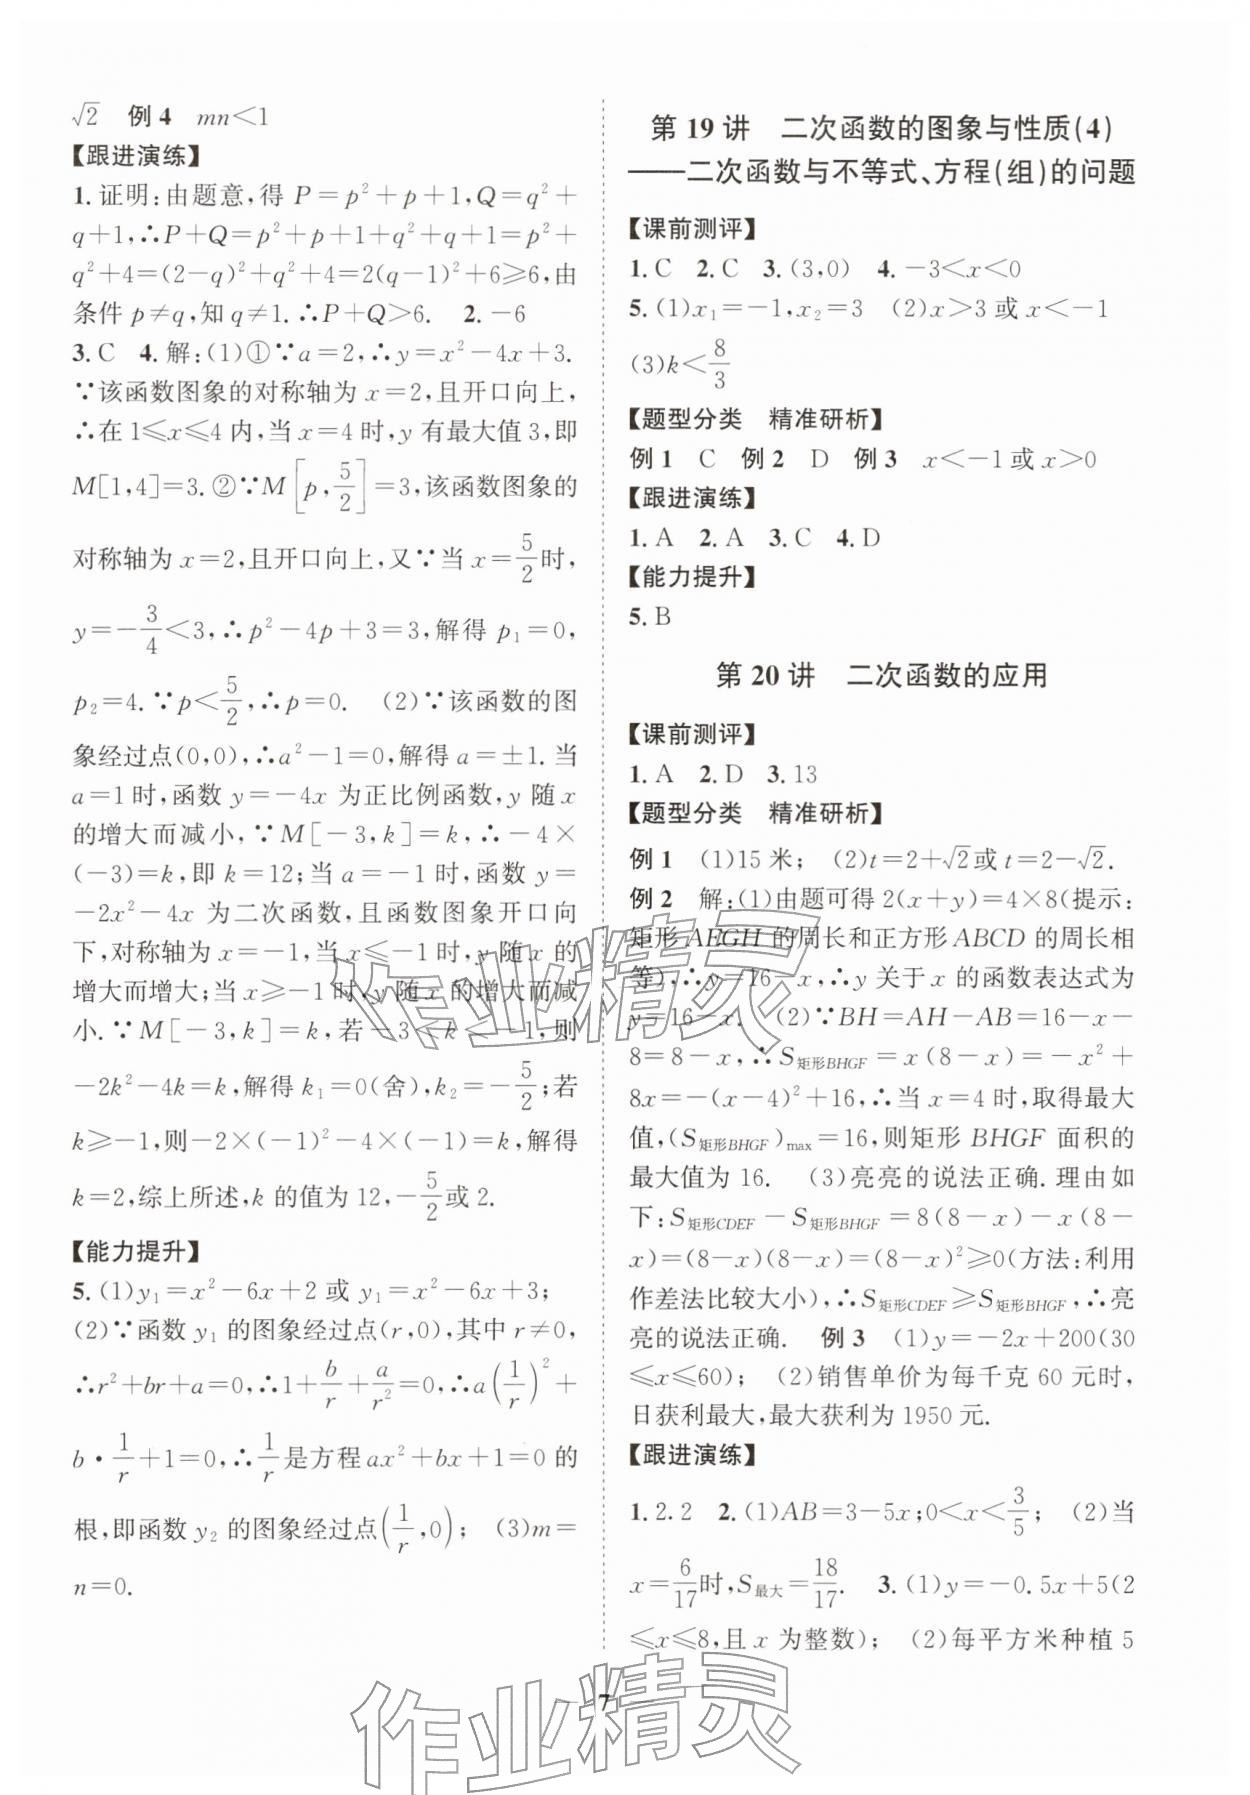 √2　例 4　mn＜1
【跟进演练】
1. 证明:由题意,得 P＝p²＋p＋1,Q＝q²＋
q＋1,∴P＋Q＝p²＋p＋1＋q²＋q＋1＝p²＋
q²＋4＝(2－q)²＋q²＋4＝2(q－1)²＋6⩾6,由
条件 p≠q,知 q≠1.∴P＋Q＞6.　2.－6
3. C　4. 解:(1)①∵a＝2,∴y＝x²－4x＋3.
∵该函数图象的对称轴为 x＝2,且开口向上,
∴在 1⩽x⩽4 内,当 x＝4 时,y 有最大值 3,即
M[1,4]＝3.②∵M[p,5/2]＝3,该函数图象的
对称轴为 x＝2,且开口向上,又∵当 x＝5/2时,
y＝－3/4＜3,∴p²－4p＋3＝3,解得 p₁＝0,
p₂＝4.∵p＜5/2,∴p＝0.　(2)∵该函数的图
象经过点(0,0),∴a²－1＝0,解得 a＝±1.当
a＝1 时,函数 y＝－4x 为正比例函数,y 随 x
的增大而减小,∵M[－3,k]＝k,∴－4×
(－3)＝k,即 k＝12;当 a＝－1 时,函数 y＝
－2x²－4x 为二次函数,且函数图象开口向
下,对称轴为 x＝－1,当 x⩽－1 时,y 随 x 的
增大而增大;当 x⩾－1 时,y 随 x 的增大而减
小.∵M[－3,k]＝k,若－3＜k＜－1,则
－2k²－4k＝k,解得 k₁＝0(舍),k₂＝－5/2;若
k⩾－1,则－2×(－1)²－4×(－1)＝k,解得
k＝2,综上所述,k 的值为 12,－5/2或 2.
【能力提升】
5. (1)y₁＝x²－6x＋2 或 y₁＝x²－6x＋3;
(2)∵函数 y₁ 的图象经过点(r,0),其中 r≠0,
∴r²＋br＋a＝0,∴1＋b/r＋a/r²＝0,∴a(1/r)²＋
b·1/r＋1＝0,∴1/r是方程 ax²＋bx＋1＝0 的
根,即函数 y₂ 的图象经过点(1/r,0);　(3)m＝
n＝0.
第 19 讲　二次函数的图象与性质(4)
——二次函数与不等式、方程(组)的问题
【课前测评】
1. C　2. C　3. (3,0)　4. －3＜x＜0
5. (1)x₁＝－1,x₂＝3　(2)x＞3 或 x＜－1
(3)k＜8/3
【题型分类　精准研析】
例 1　C　例 2　D　例 3　x＜－1 或 x＞0
【跟进演练】
1. A　2. A　3. C　4. D
【能力提升】
5. B
第 20 讲　二次函数的应用
【课前测评】
1. A　2. D　3. 13
【题型分类　精准研析】
例 1　(1)15 米;　(2)t＝2＋√2或 t＝2－√2.
例 2　解:(1)由题可得 2(x＋y)＝4×8(提示:
矩形 AEGH 的周长和正方形 ABCD 的周长相
等),∴y＝16－x,∴y 关于 x 的函数表达式为
y＝16－x.　(2)∵BH＝AH－AB＝16－x－
8＝8－x,∴S矩形BHGF＝x(8－x)＝－x²＋
8x＝－(x－4)²＋16,∴当 x＝4 时,取得最大
值,(S矩形BHGF)max＝16,则矩形 BHGF 面积的
最大值为 16.　(3)亮亮的说法正确.理由如
下:S矩形CDEF－S矩形BHGF＝8(8－x)－x(8－
x)＝(8－x)(8－x)＝(8－x)²⩾0(方法:利用
作差法比较大小),∴S矩形CDEF⩾S矩形BHGF,∴亮
亮的说法正确.　例 3　(1)y＝－2x＋200(30
⩽x⩽60);　(2)销售单价为每千克 60 元时,
日获利最大,最大获利为 1950 元.
【跟进演练】
1. 2.2　2. (1)AB＝3－5x;0＜x＜3/5;　(2)当
x＝6/17时,S最大＝18/17.　3. (1)y＝－0.5x＋5(2
⩽x⩽8,且 x 为整数);　(2)每平方米种植 5
7
作业精灵
作业精灵